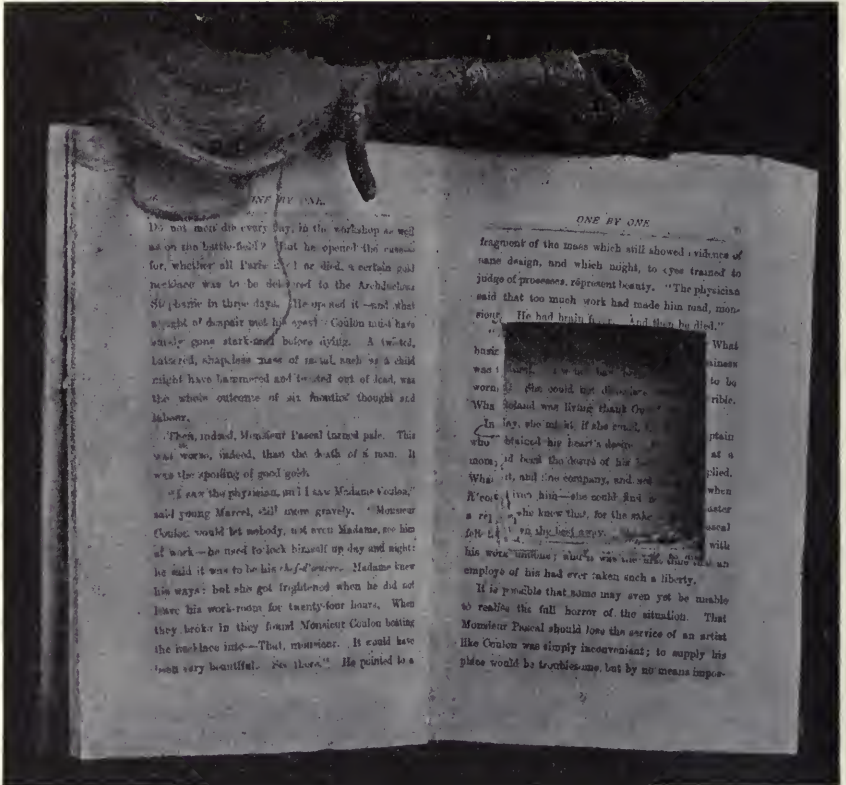 ONE BY ONE.
Do not men die every day, in the workshop as well
as on the battle-field? But he opened the
for, whether all Paris or died, a certain gold
necklace was to be delivered to the Archduchess
Stephanie in three days. He opened it—and what
a sight of despair met his eyes! Coulon must have
surely gone stark-mad before dying. A twisted,
battered, shapeless mass of metal, such as a child
might have hammered and twisted out of lead, was
the whole outcome of six months' thought and
labour.
Then, indeed, Monsieur Pascal turned pale. This
was worse, indeed, than the death of a man. It
was the spoiling of good gold.
"I saw the physician, and I saw Madame Coulon,"
said young Marcel, still more gravely. "Monsieur
Coulon would let nobody, not even Madame, see him
at work—he used to lock himself up day and night:
he said it was to be his chef-d'œuvre. Madame knew
his ways: but she got frightened when he did not
leave his work-room for twenty-four hours. When
they broke in they found Monsieur Coulon beating
the necklace into—That, monsieur. It could have
been very beautiful. See there." He pointed to a
ONE BY ONE
fragment of the mass which still showed evidence of
sane design, and which might, to eyes trained to
judge of processes, represent beauty. "The physician
said that too much work had made him mad, mon-
sieur. He had brain And then he died."
" What
iness
was to be
worn, she could not rible.
Wha Roland was living thank
In , she might, if she could, ptain
who btained his heart's at a
mom d been the desire of his plied.
Wha it, and fine company, and not when
him—she could find aster
a re he knew that, for the sake scal
fell with
his work was the first time that an
employe of his had ever taken such a liberty.
It is possible that some may even yet be unable
to realise the full horror of the situation. That
Monsieur Pascal should lose the service of an artist
like Coulon was simply inconvenient; to supply his
place would be troublesome, but by no means impos-